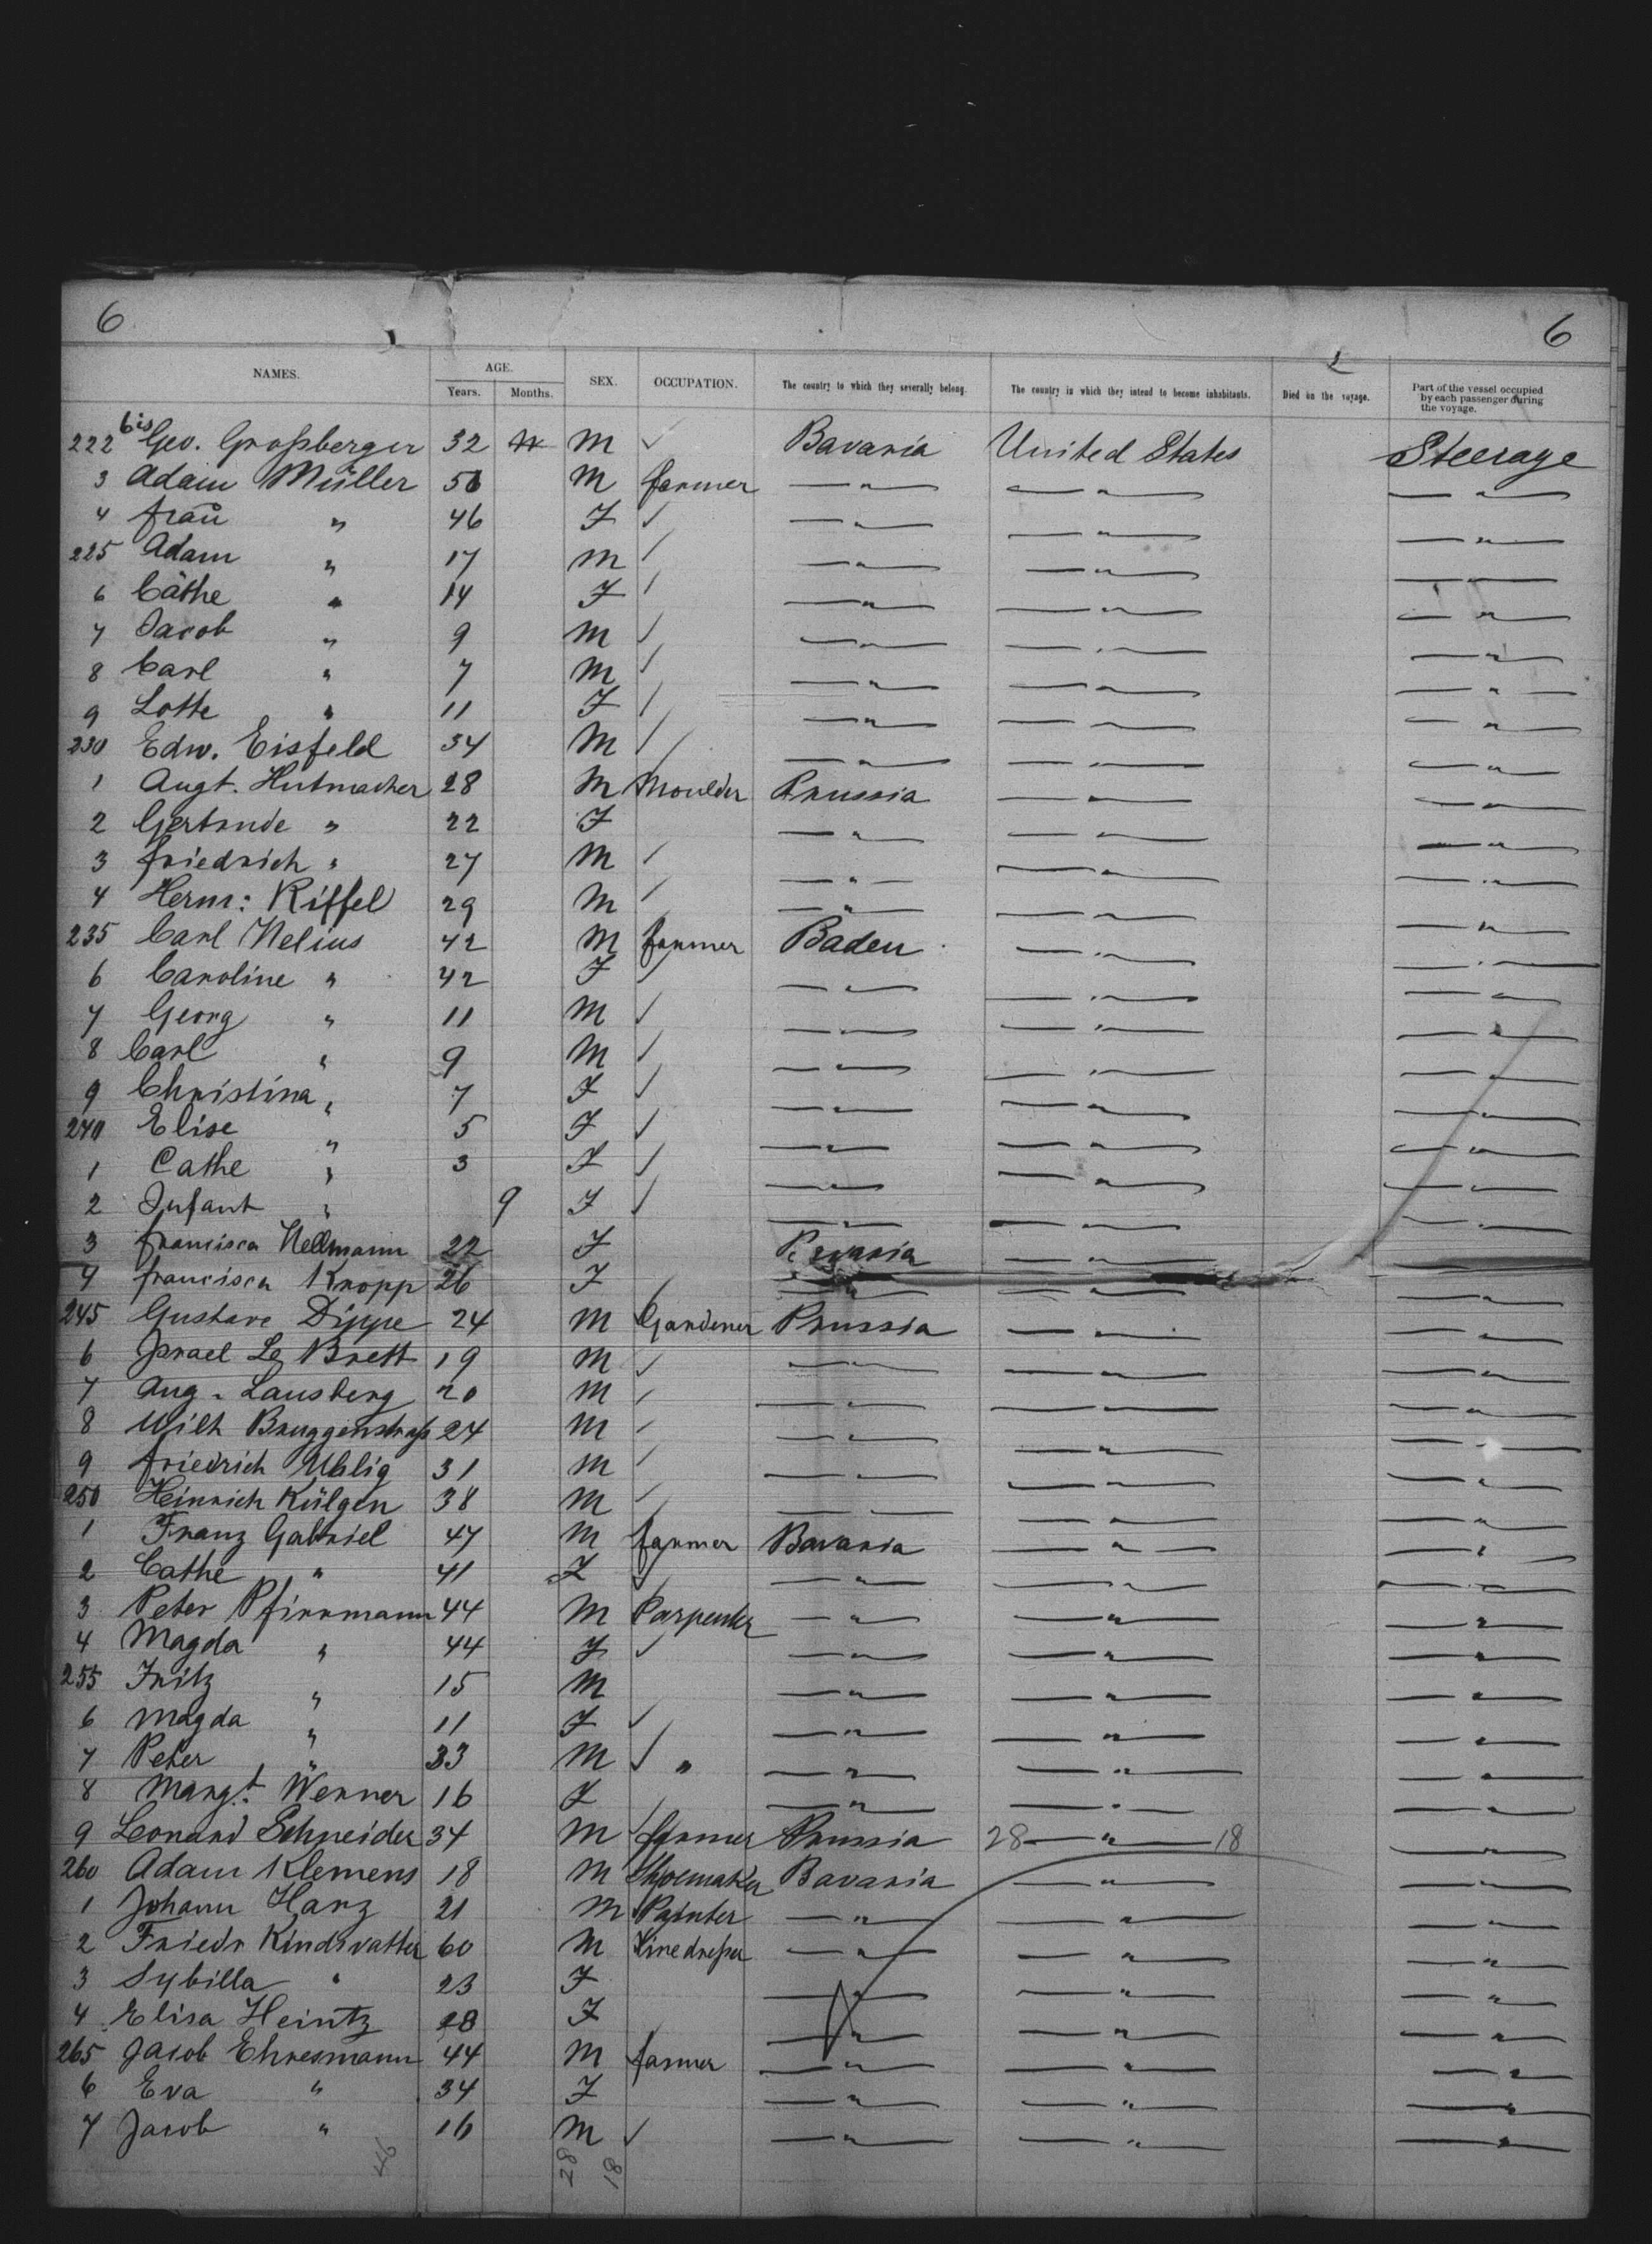 6 6
NAMES. AGE. Years. Months. SEX. OCCUPATION. The country to which they severally belong. The country in which they intend to become inhabitants. Died on the voyage. Part of the vessel occupied by each passenger during the voyage.
222 bis Geo. Großberger 32 M ✓ Bavaria United States Steerage
3 Adam Müller 50 M farmer — " — — " — — " —
4 frau " 46 F ✓ — " — — " — — " —
225 Adam " 17 M ✓ — " — — " — — " —
6 Cäthe " 14 F ✓ — " — — " — — " —
7 Jacob " 9 M ✓ — " — — " — — " —
8 Carl " 7 M ✓ — " — — " — — " —
9 Lotte " 11 F ✓ — " — — " — — " —
230 Edw. Eisfeld 34 M ✓ — " — — " — — " —
1 Augt. Hutmacher 28 M Moulder Prussia — " — — " —
2 Gertrude " 22 F — " — — " — — " —
3 friedrich " 27 M ✓ — " — — " — — " —
4 Herm: Kiffel 29 M ✓ — " — — " — — " —
235 Carl Nelius 42 M farmer Baden — " — — " —
6 Caroline " 42 F ✓ — " — — " — — " —
7 Georg " 11 M ✓ — " — — " — — " —
8 Carl " 9 M ✓ — " — — " — — " —
9 Christina " 7 F ✓ — " — — " — — " —
240 Elise " 5 F ✓ — " — — " — — " —
1 Cathe " 3 F ✓ — " — — " — — " —
2 Infant " 9 F ✓ — " — — " — — " —
3 francisca Hellmann 22 F — " — — " —
4 francisca Kropp 26 F — " — — " — — " —
245 Gustave Dippe 24 M Gardener Prussia — " — — " —
6 Israel Le Brett 19 M ✓ — " — — " — — " —
7 Aug. Lausberg 20 M ✓ — " — — " — — " —
8 Wilh Bruggenstraß 24 M ✓ — " — — " — — " —
9 friedrich Uhlig 31 M ✓ — " — — " — — " —
250 Heinrich Külgen 38 M ✓ — " — — " — — " —
1 Franz Gabriel 47 M farmer Bavaria — " — — " —
2 Cathe " 41 F ✓ — " — — " — — " —
3 Peter Pfirrmann 44 M Carpenter — " — — " — — " —
4 Magda " 44 F ✓ — " — — " — — " —
255 Fritz " 15 M — " — — " — — " —
6 Magda " 11 F ✓ — " — — " — — " —
7 Peter " 33 M ✓ " — " — — " — — " —
8 Margt. Werner 16 F — " — — " — — " —
9 Leonard Schneider 34 M farmer Prussia 28 — " — 18 — " —
260 Adam Klemens 18 M Shoemaker Bavaria — " — — " —
1 Johann Harz 21 M Painter — " — — " — — " —
2 Friedr Kindsvatter 60 M Vinedreßer — " — — " — — " —
3 Sybilla " 23 F — " — — " — — " —
4 Elisa Heintz 28 F — " — — " — — " —
265 Jacob Ehresmann 44 M farmer — " — — " — — " —
6 Eva " 34 F — " — — " — — " —
7 Jacob " 16 M ✓ — " — — " — — " —
46 28 18